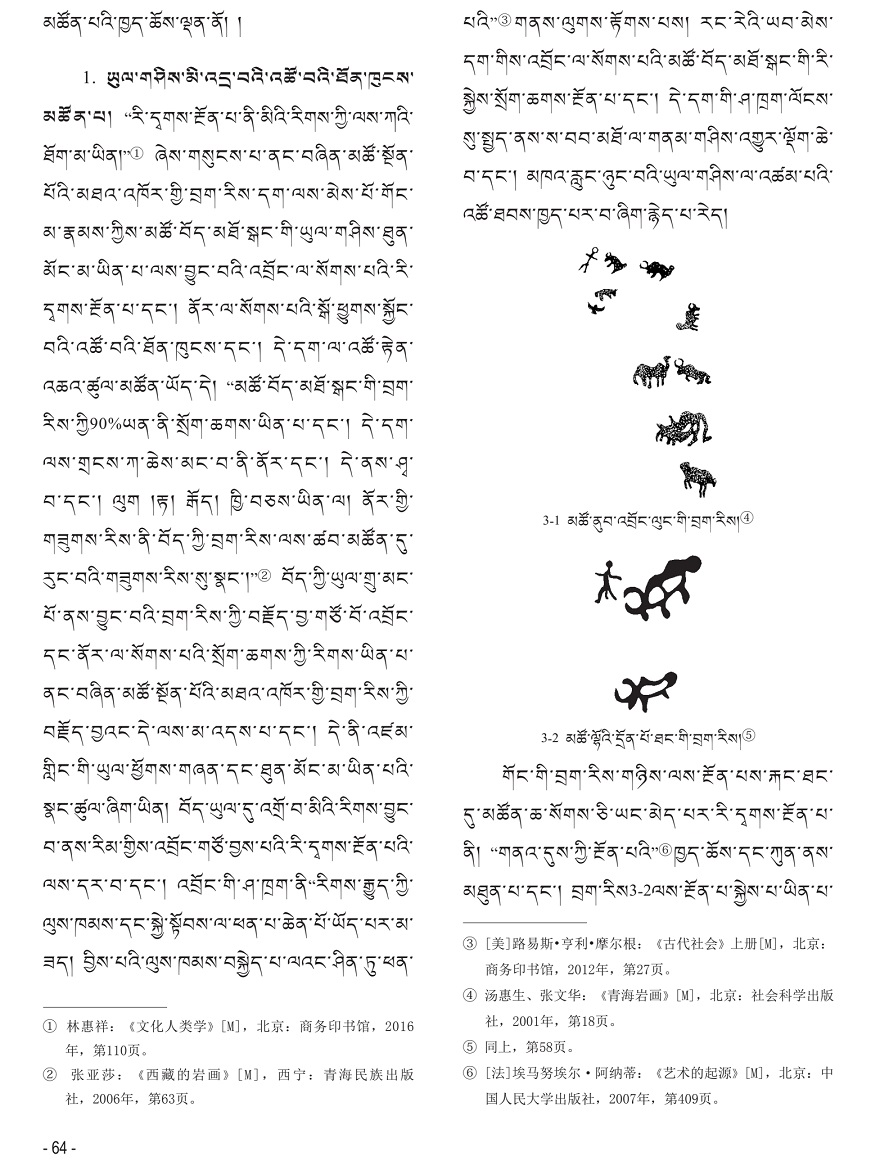 མཚོན་པའི་ཁྱད་ཆོས་ལྡན་ནོ། །
1. ཡུལ་གཤིས་མི་འདྲ་བའི་འཚོ་བའི་ཐོན་ཁུངས་
མཚོན་པ། “རི་དྭགས་རྔོན་པ་ནི་མིའི་རིགས་ཀྱི་ལས་ཀའི་
ཐོག་མ་ཡིན།”① ཞེས་གསུངས་པ་ནང་བཞིན་མཚོ་སྔོན་
པོའི་མཐའ་འཁོར་གྱི་བྲག་རིས་དག་ལས་མེས་པོ་གོང་
མ་རྣམས་ཀྱིས་མཚོ་བོད་མཐོ་སྒང་གི་ཡུལ་གཤིས་ཐུན་
མོང་མ་ཡིན་པ་ལས་བྱུང་བའི་འབྲོང་ལ་སོགས་པའི་རི་
དྭགས་རྔོན་པ་དང་། ནོར་ལ་སོགས་པའི་སྒོ་ཕྱུགས་སྐྱོང་
བའི་འཚོ་བའི་ཐོན་ཁུངས་དང་། དེ་དག་ལ་འཚོ་རྟེན་
འཆའ་ཚུལ་མཚོན་ཡོད་དེ། “མཚོ་བོད་མཐོ་སྒང་གི་བྲག་
རིས་ཀྱི90%ཡན་ནི་སྲོག་ཆགས་ཡིན་པ་དང་། དེ་དག་
ལས་གྲངས་ཀ་ཆེས་མང་བ་ནི་ནོར་དང་། དེ་ནས་ཤྭ་
བ་དང་། ལུག །རྟ། རྒོད། ཁྱི་བཅས་ཡིན་ལ། ནོར་གྱི་
གཟུགས་རིས་ནི་བོད་ཀྱི་བྲག་རིས་ལས་ཚབ་མཚོན་དུ་
རུང་བའི་གཟུགས་རིས་སུ་སྣང་།”② བོད་ཀྱི་ཡུལ་གྲུ་མང་
པོ་ནས་བྱུང་བའི་བྲག་རིས་ཀྱི་བརྗོད་བྱ་གཙོ་བོ་འབྲོང་
དང་ནོར་ལ་སོགས་པའི་སྲོག་ཆགས་ཀྱི་རིགས་ཡིན་པ་
ནང་བཞིན་མཚོ་སྔོན་པོའི་མཐའ་འཁོར་གྱི་བྲག་རིས་ཀྱི་
བརྗོད་བྱའང་དེ་ལས་མ་འདས་པ་དང་། དེ་ནི་འཛམ་
གླིང་གི་ཡུལ་ཕྱོགས་གཞན་དང་ཐུན་མོང་མ་ཡིན་པའི་
སྣང་ཚུལ་ཞིག་ཡིན། བོད་ཡུལ་དུ་འགྲོ་བ་མིའི་རིགས་བྱུང་
བ་ནས་རིམ་གྱིས་འབྲོང་གཙོ་བྱས་པའི་རི་དྭགས་རྔོན་པའི་
ལས་དར་བ་དང་། འབྲོང་གི་ཤ་ཁྲག་ནི་“རིགས་རྒྱུད་ཀྱི་
ལུས་ཁམས་དང་སྐྱེ་སྟོབས་ལ་ཕན་པ་ཆེན་པོ་ཡོད་པར་མ་
ཟད། བྱིས་པའི་ལུས་ཁམས་བསྐྱེད་པ་ལའང་ཤིན་ཏུ་ཕན་
① 林惠祥：《文化人类学》[M]，北京：商务印书馆，2016
年，第110页。
② 张亚莎：《西藏的岩画》[M]，西宁：青海民族出版
社，2006年，第63页。
- 64 -
པའི”③གནས་ལུགས་རྟོགས་པས། རང་རེའི་ཡབ་མེས་
དག་གིས་འབྲོང་ལ་སོགས་པའི་མཚོ་བོད་མཐོ་སྒང་གི་རི་
སྐྱེས་སྲོག་ཆགས་རྔོན་པ་དང་། དེ་དག་གི་ཤ་ཁྲག་ལོངས་
སུ་སྤྱད་ནས་ས་བབ་མཐོ་ལ་གནམ་གཤིས་འགྱུར་ལྡོག་ཆེ་
བ་དང་། མཁའ་རླུང་ཉུང་བའི་ཡུལ་གཤིས་ལ་འཚམ་པའི་
འཚོ་ཐབས་ཁྱད་པར་བ་ཞིག་རྙེད་པ་རེད།
3-1 མཚོ་ནུབ་འབྲོང་ལུང་གི་བྲག་རིས།④
3-2 མཚོ་ལྷོའི་དྲོན་པོ་ཐང་གི་བྲག་རིས།⑤
གོང་གི་བྲག་རིས་གཉིས་ལས་རྔོན་པས་རྐང་ཐང་
དུ་མཚོན་ཆ་སོགས་ཅི་ཡང་མེད་པར་རི་དྭགས་རྔོན་པ་
ནི། “གནའ་དུས་ཀྱི་རྔོན་པའི”⑥ཁྱད་ཆོས་དང་ཀུན་ནས་
མཐུན་པ་དང་། བྲག་རིས3-2ལས་རྔོན་པ་སྐྱེས་པ་ཡིན་པ་
③ [美]路易斯•亨利•摩尔根：《古代社会》上册[M]，北京：
商务印书馆，2012年，第27页。
④ 汤惠生、张文华：《青海岩画》[M]，北京：社会科学出版
社，2001年，第18页。
⑤ 同上，第58页。
⑥ [法]埃马努埃尔·阿纳蒂：《艺术的起源》[M]，北京：中
国人民大学出版社，2007年，第409页。